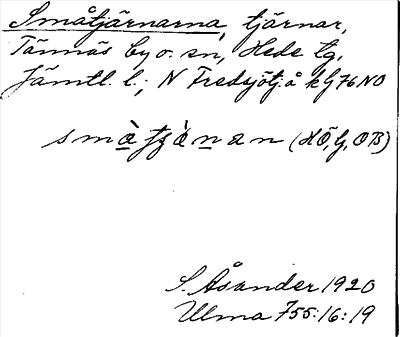 Småtjärnarna, tjärnar,
Tännäs by o. sn, Hede tg,
Jämtl. l.; N Fredsjötj:å kg 76 NO
småtjànan (HÖ, G, OB)
S. Åsander 1920
Ulma 755:16:19